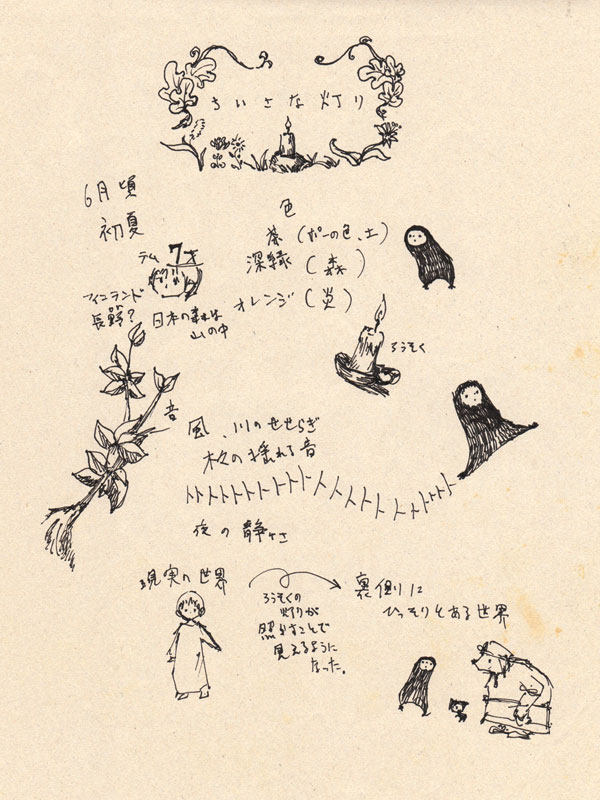 ちいさな灯り
6月頃
初夏
テム 7才
フィンランド
長野?
日本の森は
山の中
色
茶(ポーの色、土)
深緑(森)
オレンジ(炎)
ろうそく
音
風、川のせせらぎ
木々の揺れる音
トトトトトトトトトトトトトトトトトトトトトト
夜の静けさ
現実の世界
ろうそくの
灯りが
照らすことで
見えるように
なった。
裏側に
ひっそりとある世界